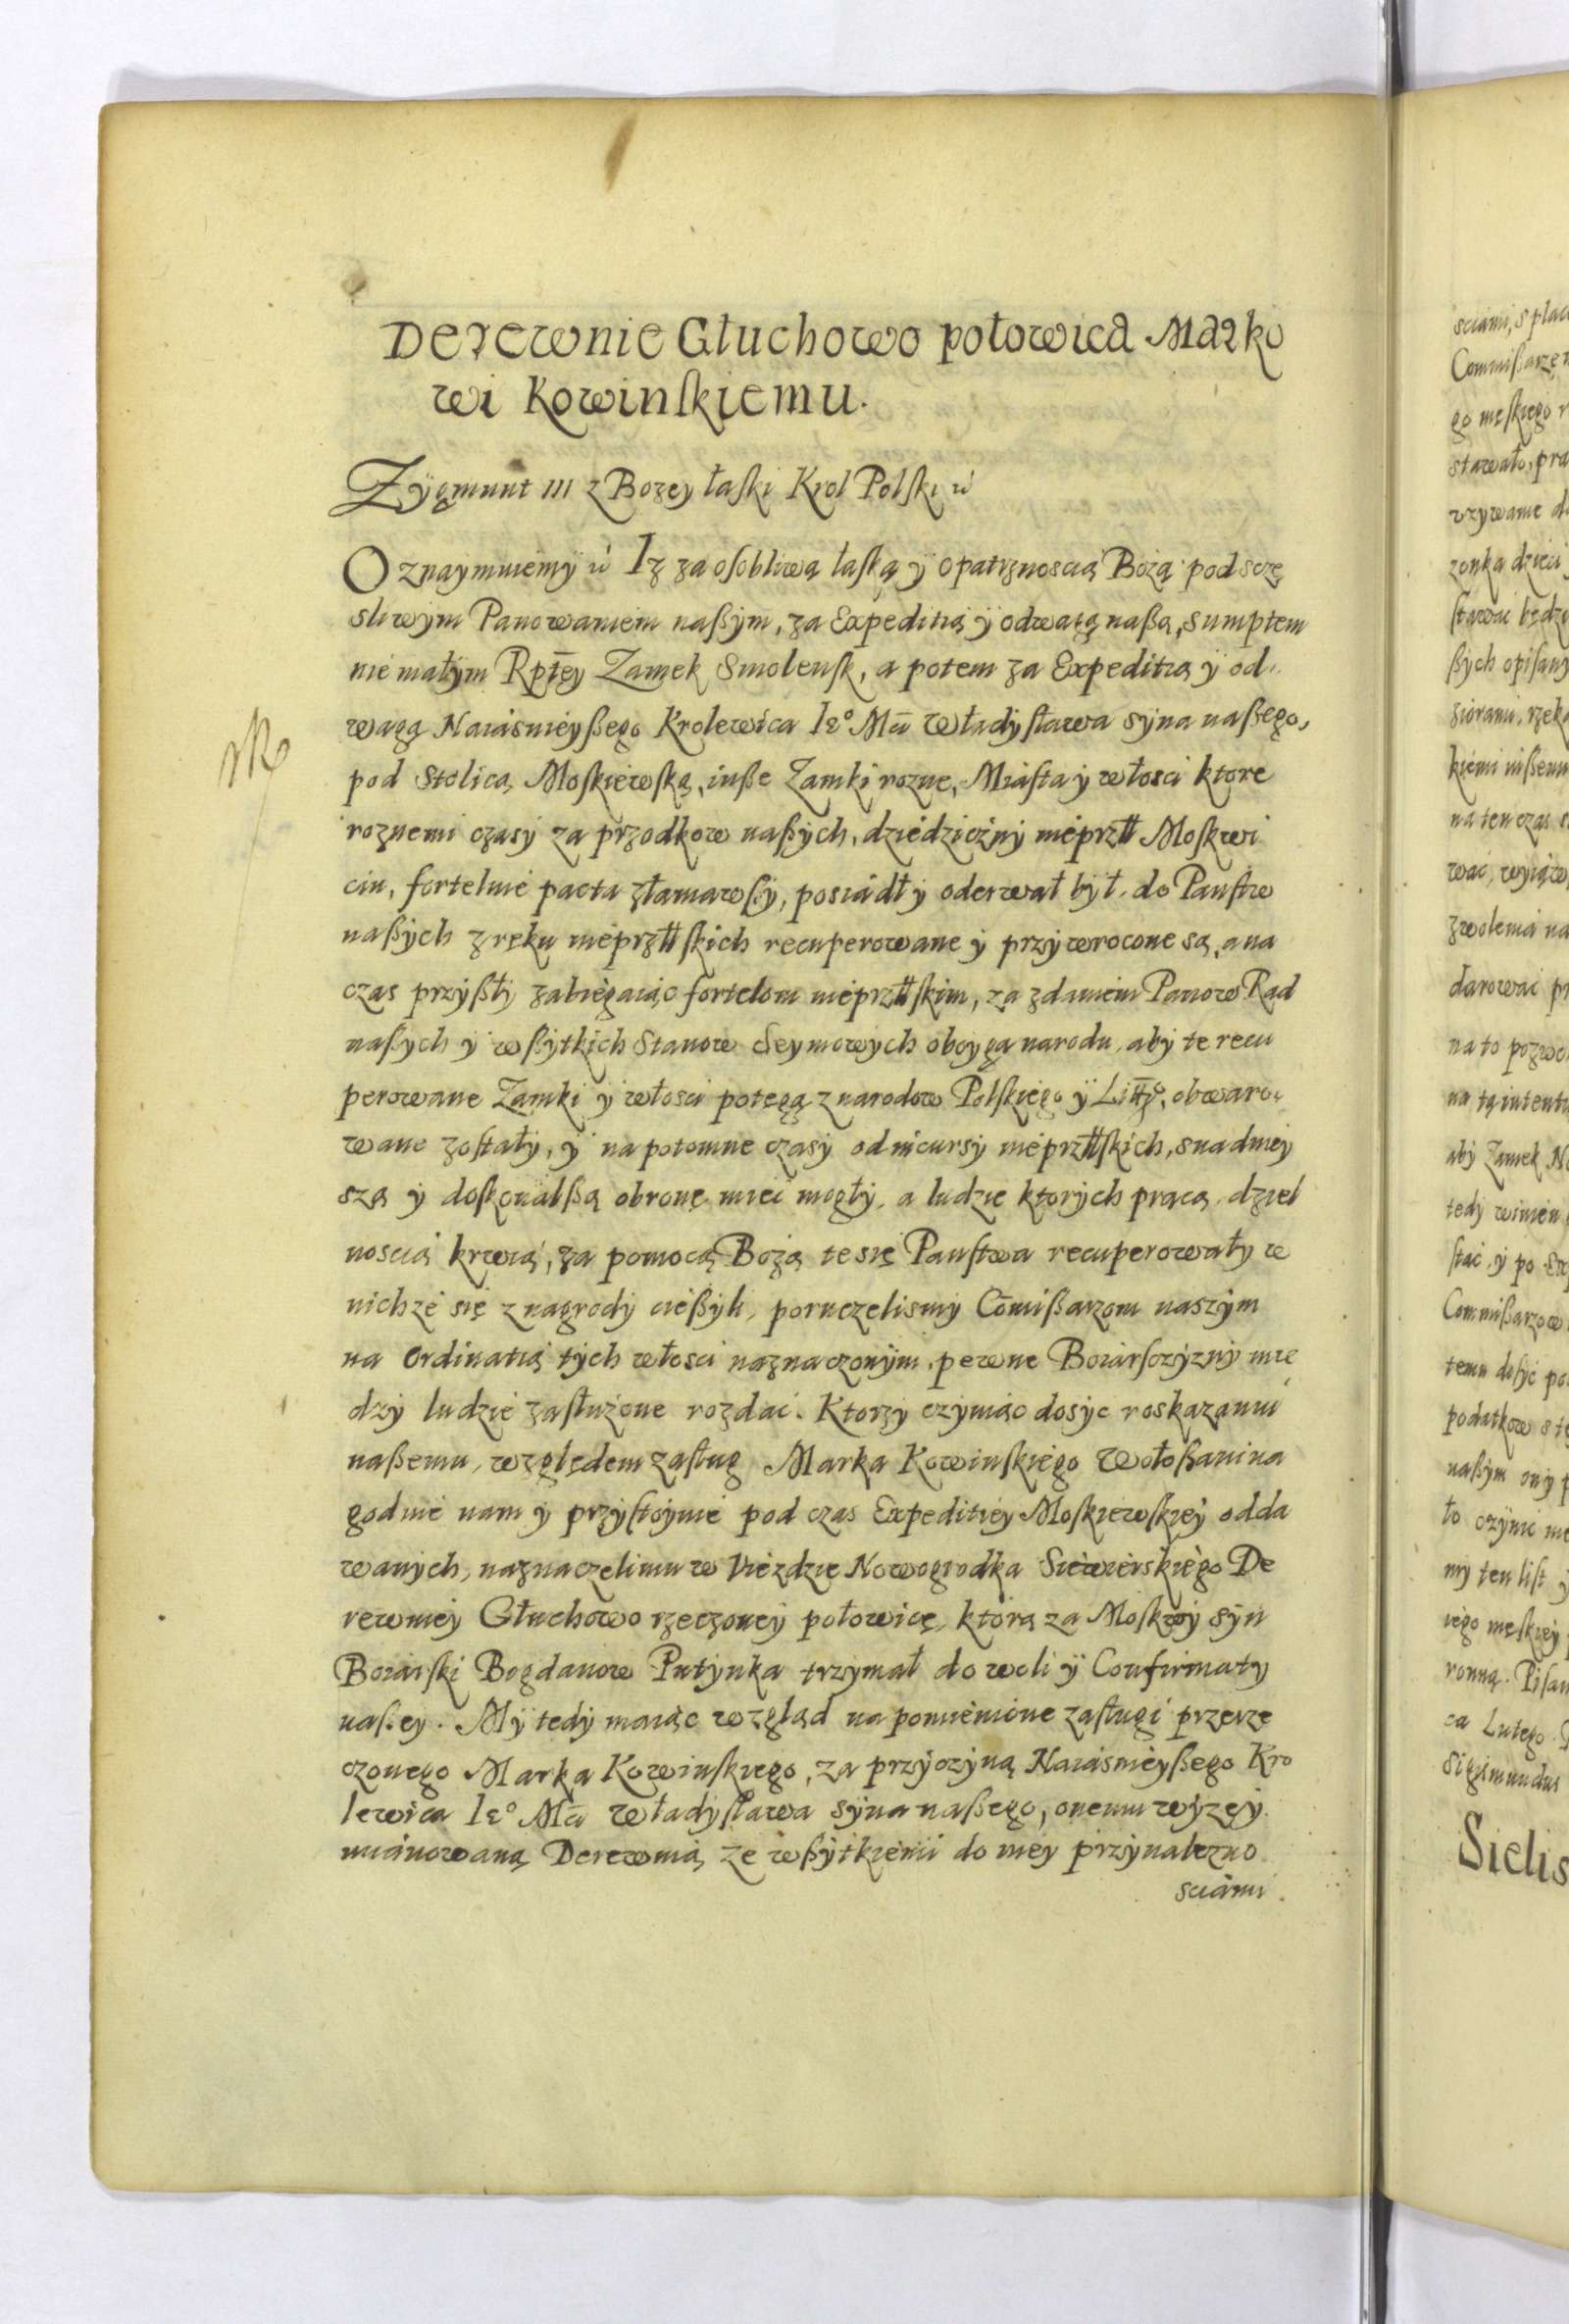 Derewnie Głuchowo połowica Marko
wi Kowinſkiemu.
Zygmunt III z Bożey łaſki Krol Polſki
Oznaymuiemy Iż za oſobliwą łaſką y opatrznoscią Bożą pod sczę
sliwym Panowaniem naßym, za Expeditią y odwagą naßą, sumptem
nie małym Rptey Zamek Smolenſk, a potem za Expeditią y od
wagą Naiasnieyßego Krolewica Ie° Mci Władyſława syna naßego,
pod Stolicą Moſkiewſką, inße Zamki rozne, Miaſta y włosci ktore
roznemi czasy za przodkow naßych, dziedziczny nieprzll Moſkwi
cin, fortelnie pacta złamawſzy, posiadł y oderwał był, do Panſtw
naßych z ręku nieprzllſkich recuperowane y przywrocone są, a na
czas przyßły zabiegaiąc fortelom nieprzllſkim, za zdaniem Panow Rad
naßych y wßytkich Stanow Seymowych oboyga narodu, aby te recu
perowane Zamki y włosci potęgą z narodow Polſkiego y Littgo, obwaro
wane zoſtały, y na potomne czasy od incursy nieprzllſkich, snadniey
szą y doſkonalßą obronę mieć mogły, a ludzie ktorych pracą, dziel
noscią krwią, za pomocą Bożą te się Panſtwa recuperowały w
nichże się z nagrody cießyli, poruczelismy Comißarzom naszym
na Ordinatią tych włosci naznaczonym, pewne Boiarſczyzny mie
dzy ludzie zaſłużone rozdać. Ktorzy czyniąc dosyc roskazaniu
naßemu, względem zaſług Marka Kowinſkiego Wołoßanina
godnie nam y przyſtoynie pod czas Expeditiey Moſkiewſkiey odda
wanych, naznaczeli mu w Uieździe Nowogrodka Siewierskiego De
rewniey Głuchowo rzeczoney połowicę, ktorą za Moſkwy syn
Boiarſki Bogdanow Putynka trzymał do woli y Confirmaty
naſzey. My tedy maiąc wzgląd na pomienione zaſługi przerze
czonego Marka Kowinſkiego, za przyczyną Naiasnieyßego Kro
lewica Ie° Mci Władyſława syna naßego, onemu wyzey
mianowaną Derewnią ze wßytkiemi do niey przynalezno
sciami.
sciami, s płac
Commißarze
go męſkiego
stawało, pra
vzywanie d
zonka dzieci
ſtawać będz
ßych opiſany
kiemi inßemi
na ten czas s
zwolenia na
darować pr
na to pozwo
na tą intentą
aby Zamek No
tedy winien
ſtać y po Ex
Commißarzow
temu dosyć po
podatkow s te
naßym
to czynic
my ten liſt y
iego męſkiey
ronną. Piſan
ca Lutego
Sigismundus
Sielis